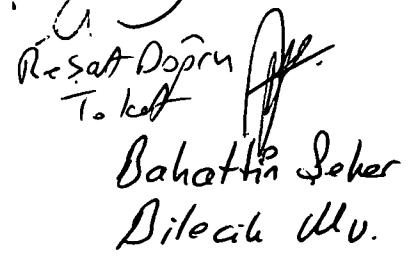 Reşat Doğru
Tokat
Bahattin Şeker
Bilecik Mv.